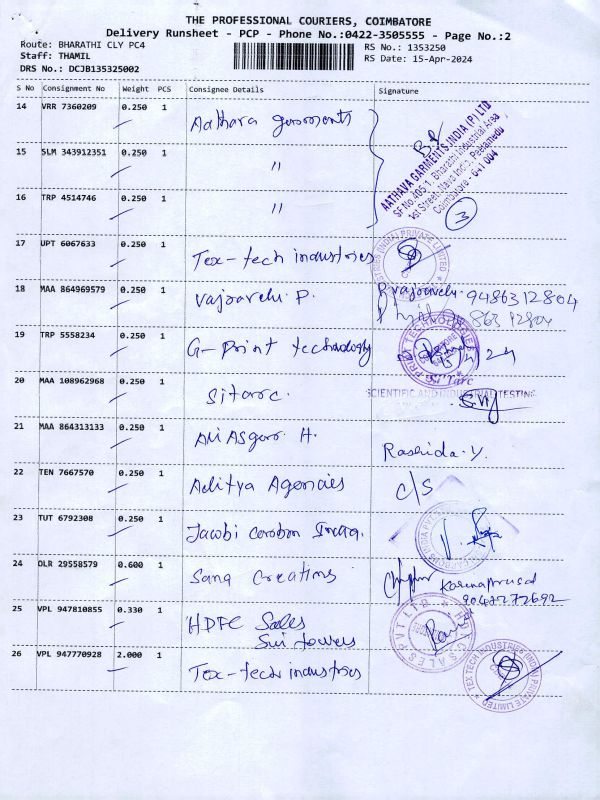 THE PROFESSIONAL COURIERS, COIMBATORE
Delivery Runsheet - PCP - Phone No.:0422-3505555 - Page No.:2
Route: BHARATHI CLY PC4
RS No.: 1353250
Staff: THAMIL
RS Date: 15-Apr-2024
DRS No.: DCJB135325002
S No Consignment No Weight PCS Consignee Details Signature
14 VRR 7360209 0.250 1 Aathava garments
AATHAVA GARMENTS INDIA (P) LTD
SF No.405/1, Bharathi Industrial Area
1st Street, Nava India, Peelamedu
Coimbatore - 641 004
3
15 SLM 343912351 0.250 1 "
16 TRP 4514746 0.250 1 "
17 UPT 6067633 0.250 1 Tex-tech industries
18 MAA 864969579 0.250 1 Vajravelu P. P. Vajravelu. 9486312804
19 TRP 5558234 0.250 1 G-Print technology
PRINT TECHNOLOGIES
20 MAA 108962968 0.250 1 Sitarc.
Si'Tarc
SCIENTIFIC AND INDUSTRIAL TESTING
21 MAA 864313133 0.250 1 Ali Asgar. H. Rashida.Y.
22 TEN 7667570 0.250 1 Aditya Agencies C/S
23 TUT 6792308 0.250 1 Jacobi Carbon India.
24 DLR 29558579 0.600 1 Sana Creations
25 VPL 947810855 0.330 1 HDFC Sales
Sri towers
SALES PVT LTD
26 VPL 947770928 2.000 1 Tex-tech industries
TEX TECH INDUSTRIES (INDIA) PRIVATE LIMITED